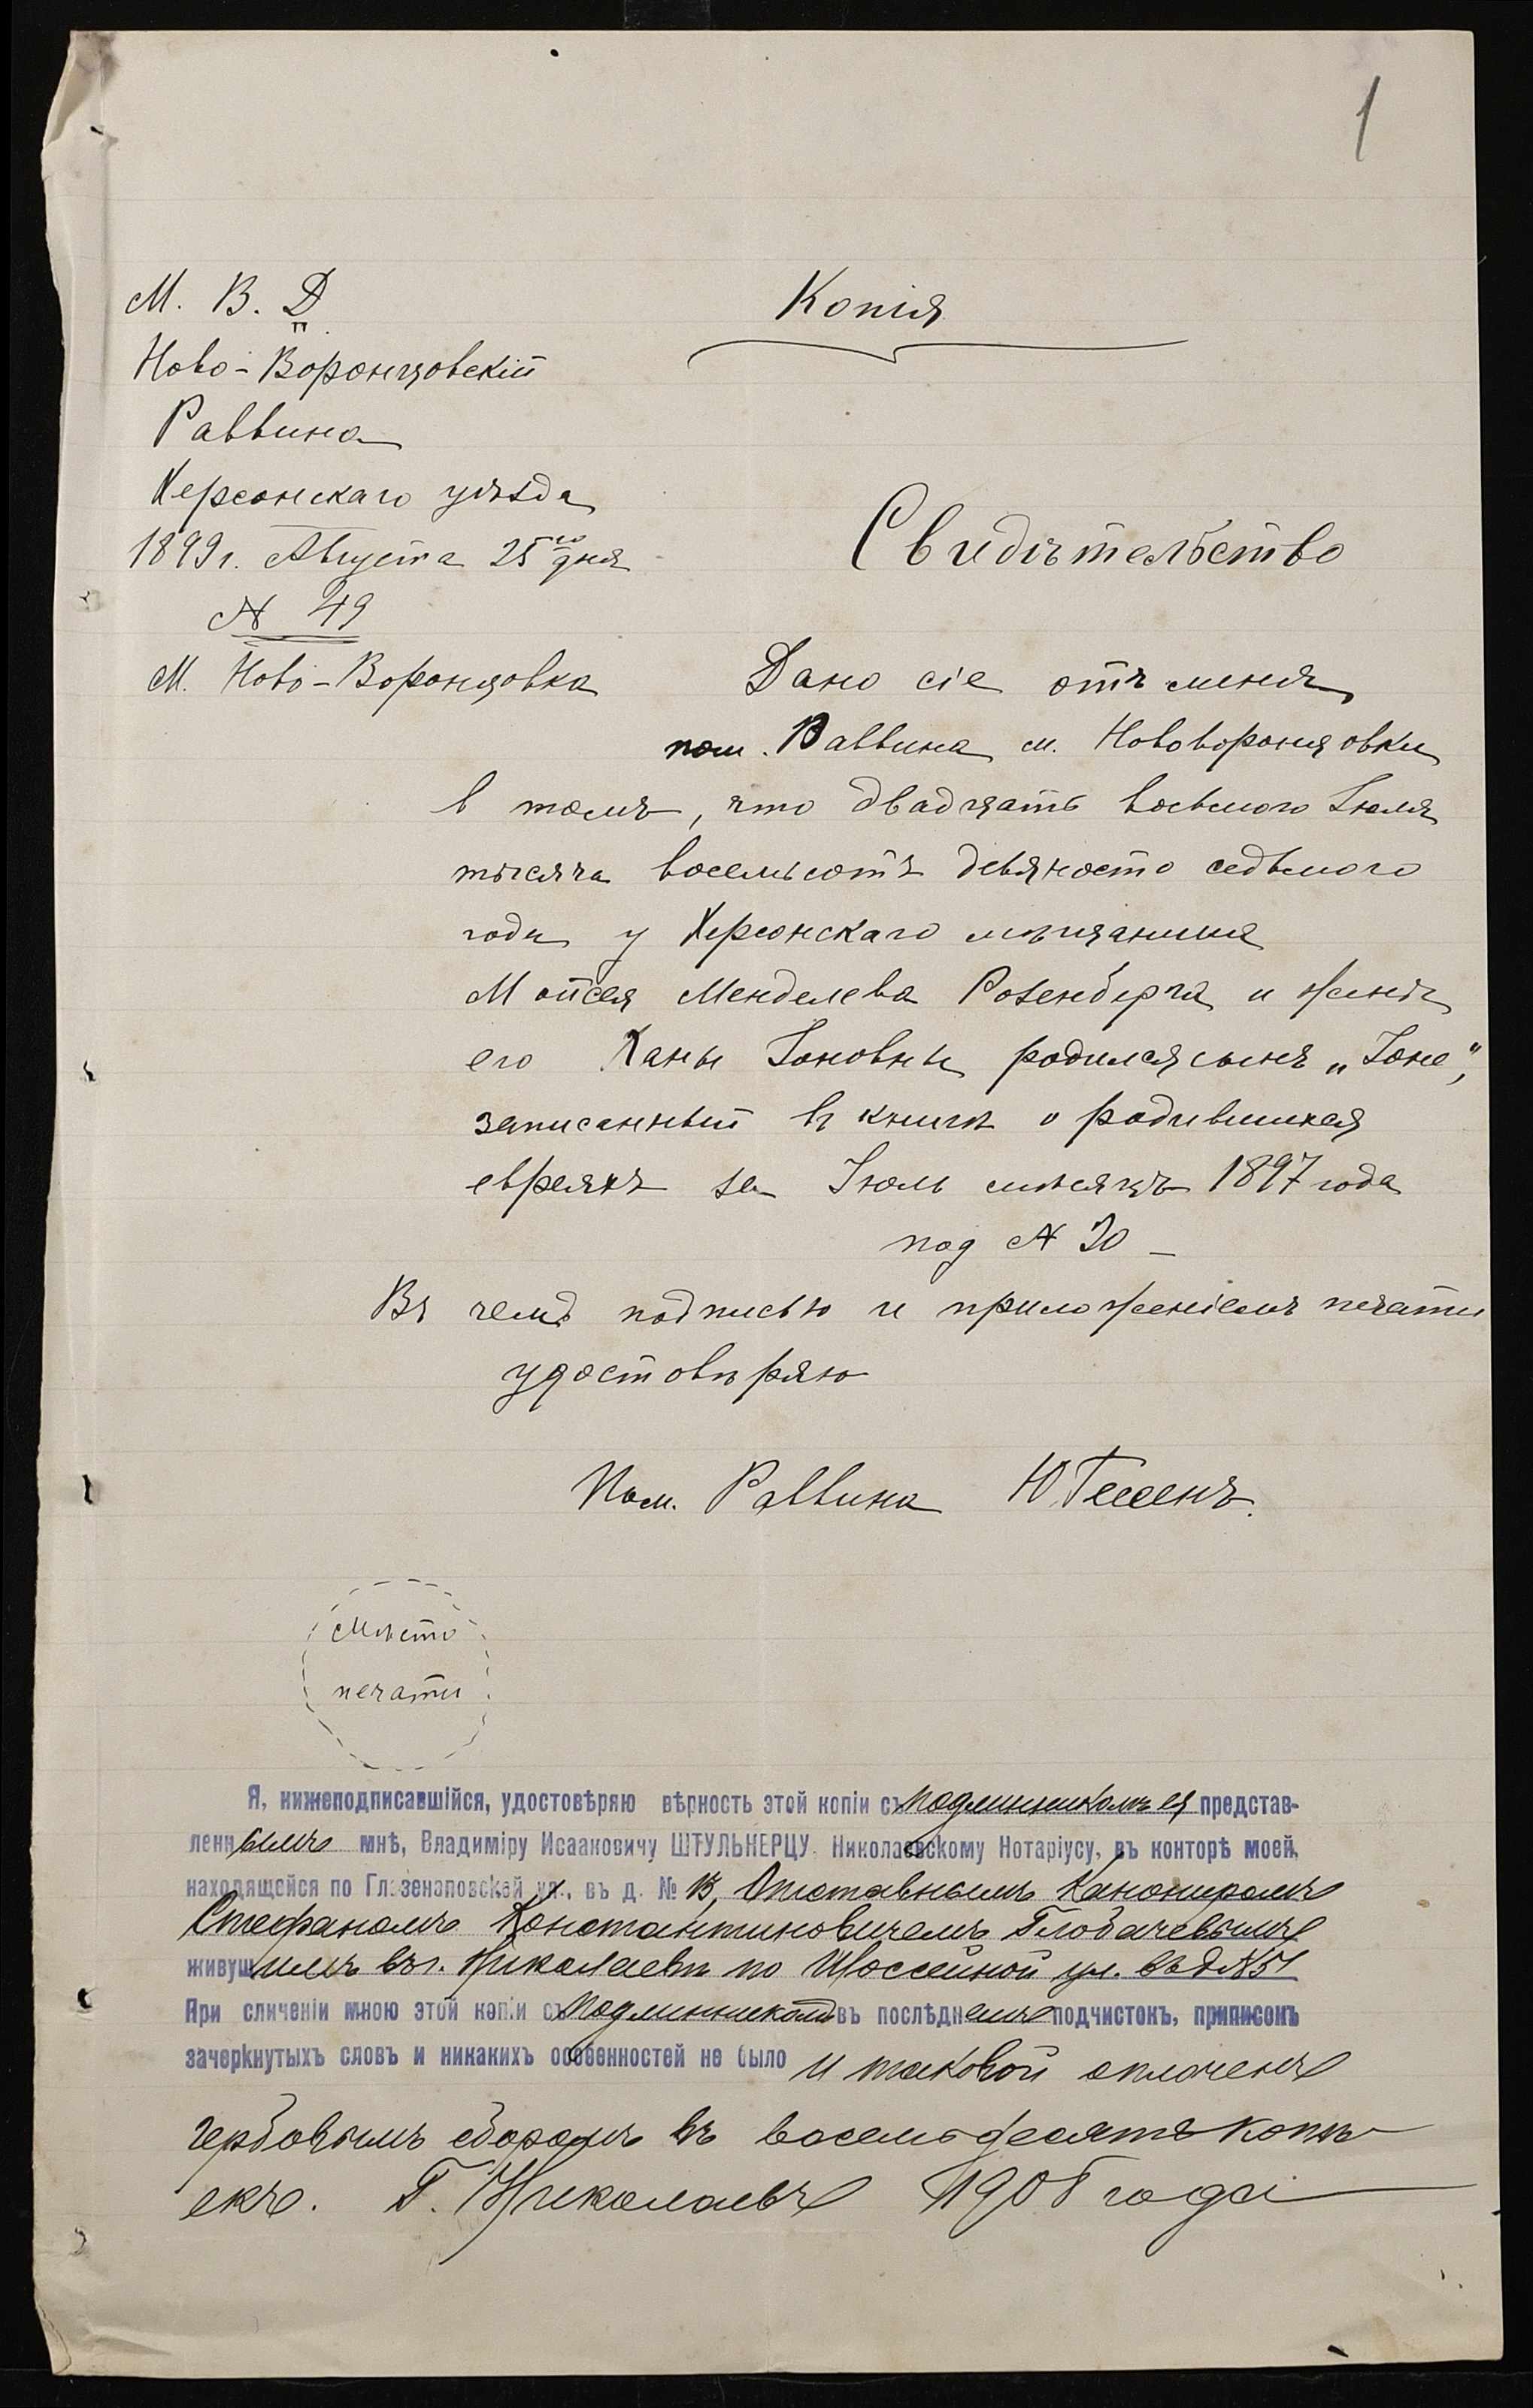 1
М. В. Д
П.
Ново-Воронцовскій
Раввина
Херсонскаго уѣзда
1899 г. Августа 25го дня
№ 49
М. Ново-Воронцовка
Копія
Свидѣтельство
Дано сіе отъ меня
пом. Раввина м. Нововоронцовки
в томъ, что двадцать восьмого Іюля
тысяча восемьсотъ девяносто седьмого
года у Херсонскаго мѣщанина
Мойсея Менделева Розенберга и женѣ
его Ханы Іоновны родился сынъ „Іоне”,
записанный въ книгѣ о родившихся
евреяхъ за Іюль мѣсяцъ 1897 года
под № 30 –
Въ чемъ подписью и приложеніемъ печати
удостовѣряю
Пом. Раввина Ю. Гессенъ.
Мѣсто
печати
Я, нижеподписавшійся, удостовѣряю вѣрность этой копіи съ подлинникомъ ея представ-
леннымъ мнѣ, Владиміру Исааковичу ШТУЛЬКЕРЦУ, Николаевскому Нотаріусу, въ конторѣ моей,
находящейся по Глазенаповской ул., въ д. № 13, Отставнымъ Канониромъ
Стефаномъ Константиновичемъ Глобачевымъ
живущимъ въ г. Николаевѣ по Шоссейной ул. въ д № 51
При сличеніи мною этой копіи съ подлинникомъ въ послѣднемъ подчистокъ, приписокъ
зачеркнутыхъ словъ и никакихъ особенностей не было и таковой оплаченъ
гербовымъ сборомъ въ восемьдесятъ копѣ-
екъ. Г. Николаевъ 1908 года